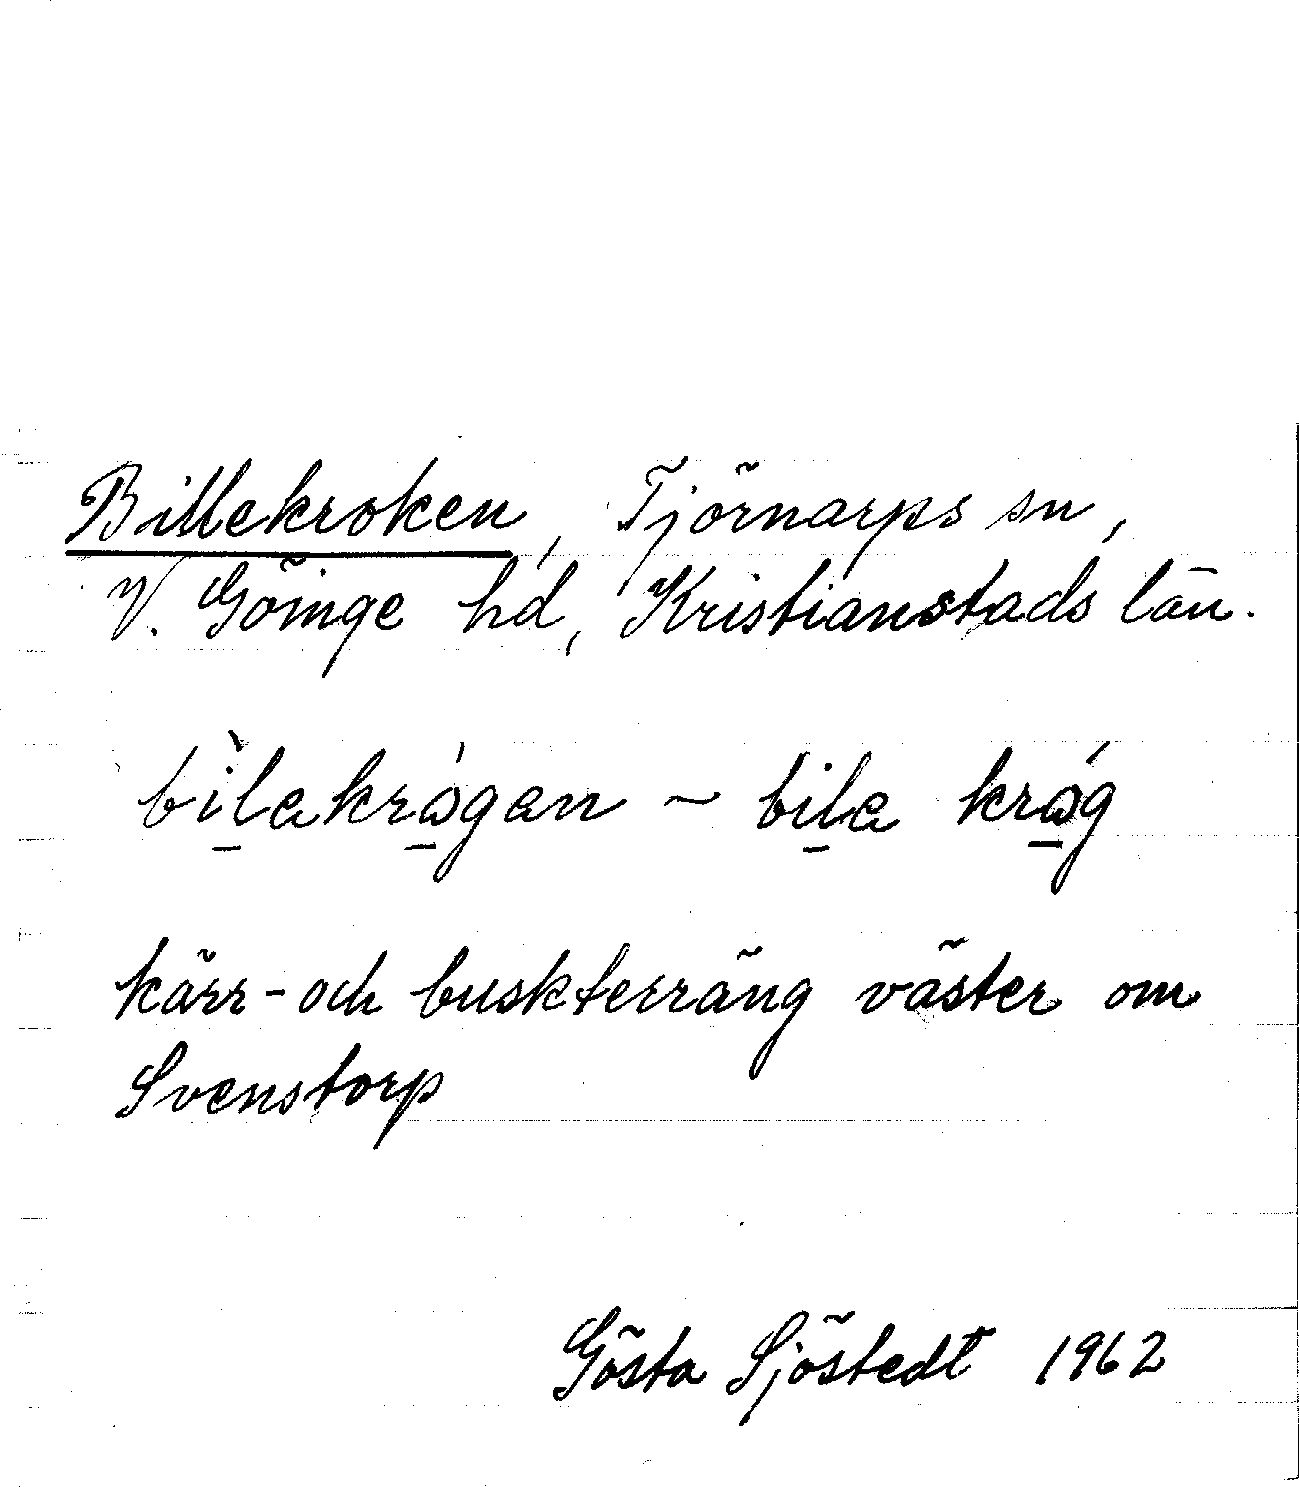 Billekroken, Tjörnarps sn,
V. Göinge hd, Kristianstads län.
bìlekrógen ~ bile króg
kärr- och buskterräng väster om
Svenstorp
Gösta Sjöstedt 1962